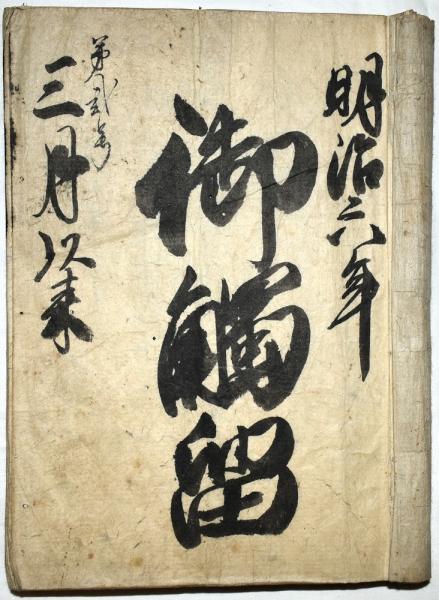 明治六年
御觸留
第弐号
三月以来